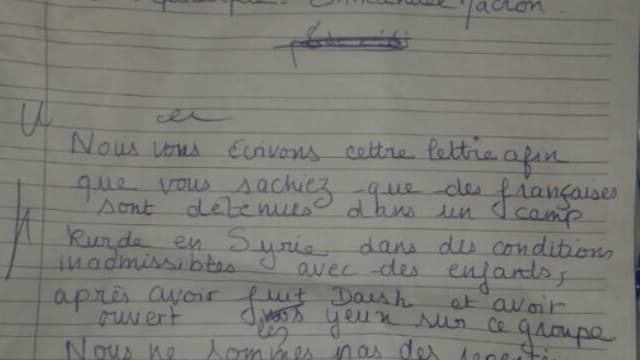 Emmanuel Macron.
Nous vous écrivons cettre lettre afin
que vous sachiez que des françaises
sont detenues dans un camp
Kurde en Syrie dans des conditions
inadmissibles avec des enfants,
après avoir fuit Daesh et avoir
ouvert les yeux sur ce groupe
Nous ne sommes pas des